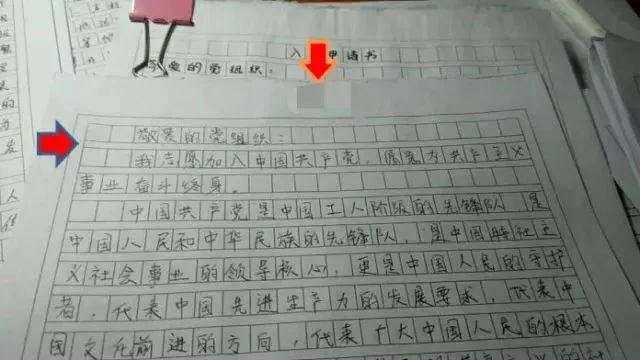 入 申请书
爱的党组织：
敬爱的党组织：
我志愿加入中国共产党，愿意为共产主义
事业奋斗终身。
中国共产党是中国工人阶级的先锋队，是
中国人民和中华民族的先锋队，是中国特社主
义社会事业的领导核心，更是中国人民的守护
者，代表中国先进生产力的发展要求，代表中
国文化前进的方向，代表十大中国人民的根本